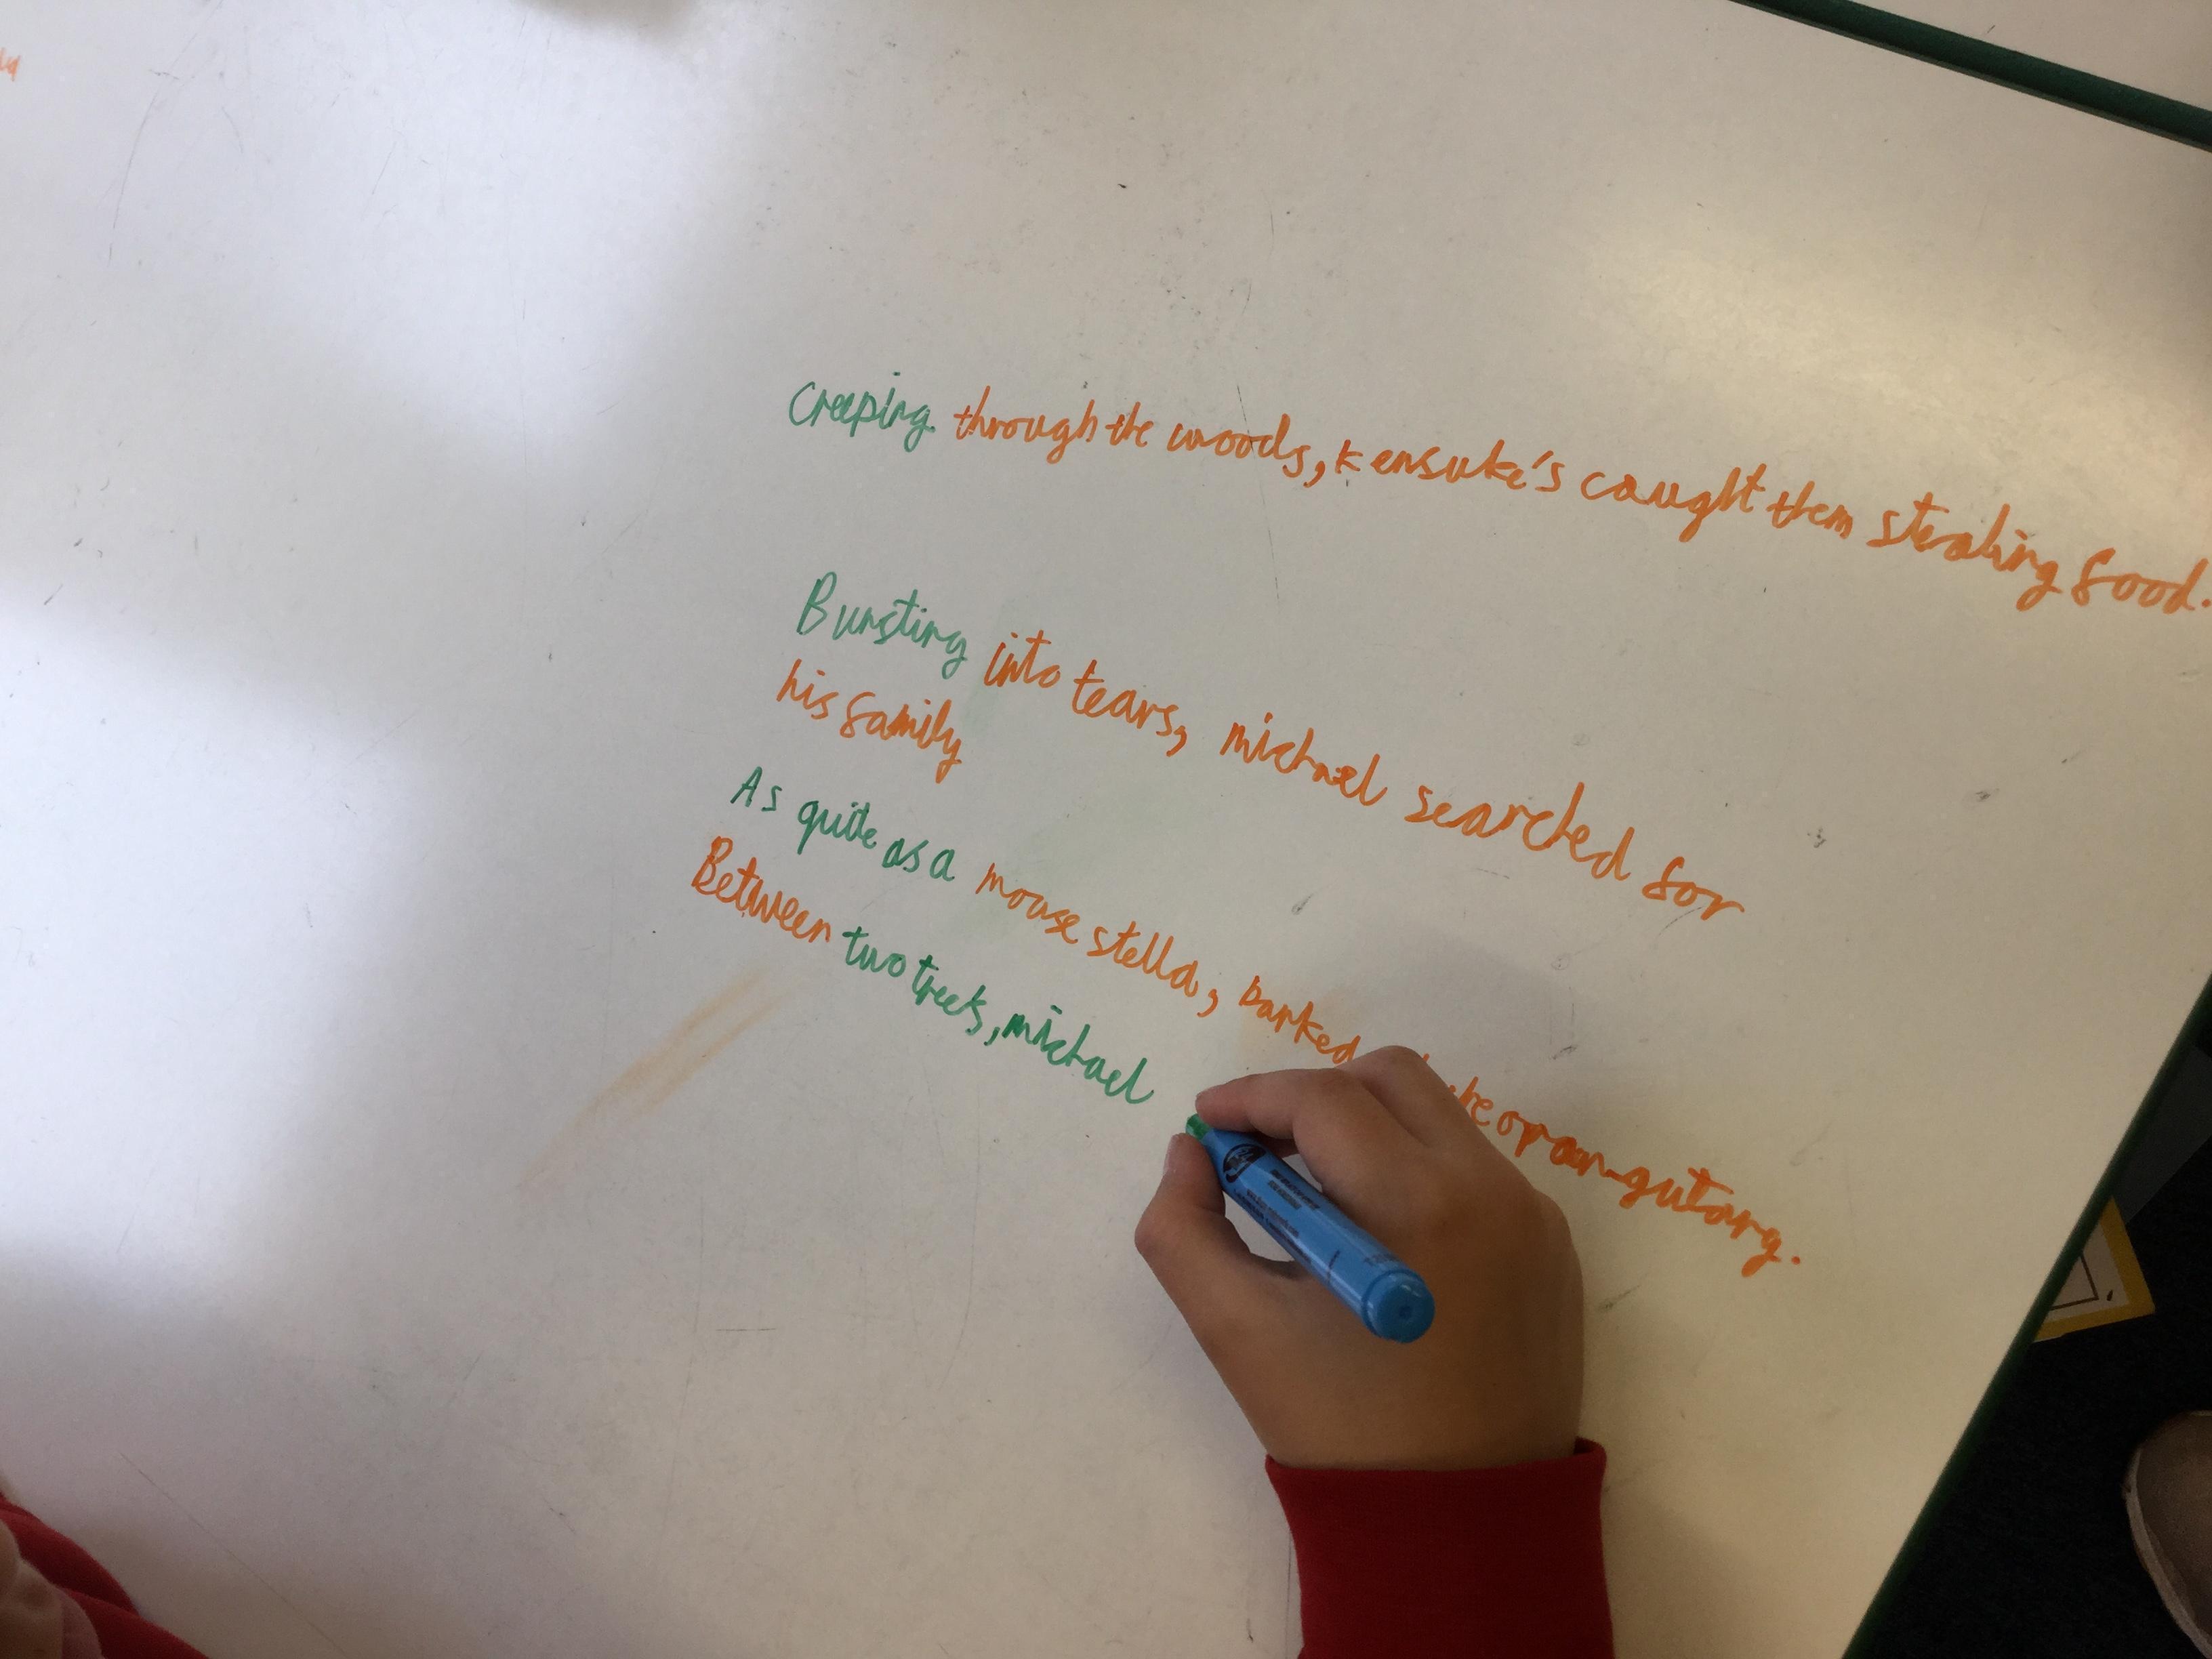 Creeping through the woods, kensuke's caught them stealing food.
Bursting into tears, michael searched for
his family
As quite as a mouse stella, barked opoan-gutang.
Between two trees, michael